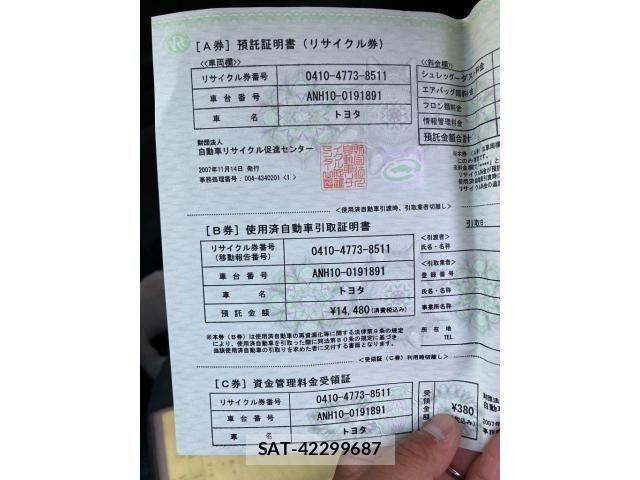 [A券] 預託証明書 (リサイクル券)
≪車両欄≫
リサイクル券番号 0410-4773-8511
車台番号 ANH10-0191891
車名 トヨタ
≪料金欄≫
シュレッダーダスト料金
エアバッグ類料金
フロン類料金
情報管理料金
預託金額合計
財団法人
自動車リサイクル促進センター
2007年11月14日 発行
事務処理番号: 004-4340201 <1>
<使用済自動車引渡時、引取業者切離し>
[B券] 使用済自動車引取証明書
引取日:
リサイクル券番号 0410-4773-8511
(移動報告番号)
車台番号 ANH10-0191891
車名 トヨタ
預託金額 ¥14,480(消費税込み)
<引渡者>
氏名・名称
<引取業者>
登録番号
氏名・名称
事業所名称
所在地
TEL.
※本券(B券)は使用済自動車の再資源化等に関する法律第9条の規定
により、使用済自動車を引取った際に同法第80条の規定に基づき
当該使用済自動車の引取りを求めた者に交付する書面となります。
<受領証(C券)利用時切離し>
[C券] 資金管理料金受領証
リサイクル券番号 0410-4773-8511
車台番号 ANH10-0191891
車名 トヨタ
受領金額 ¥380
税込み)
財団法人
自動車
2007年
SAT-42299687